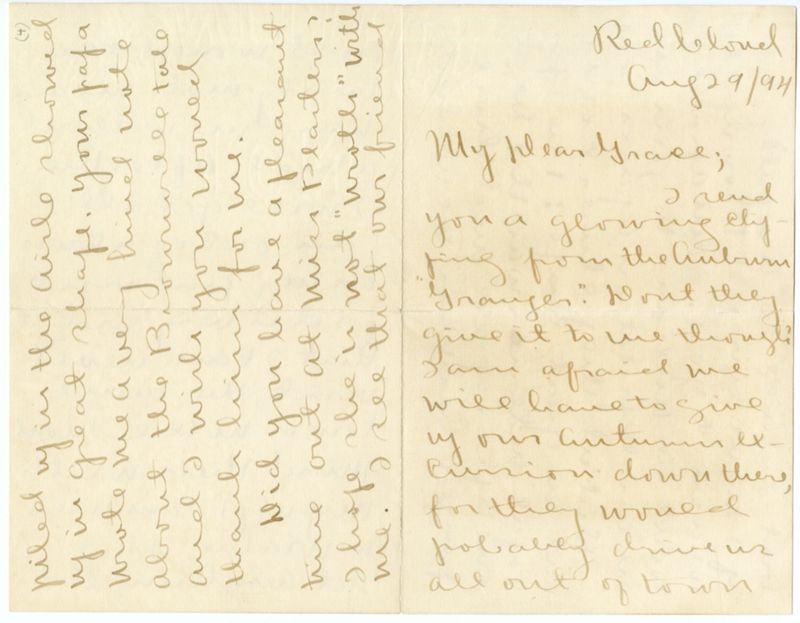 Red Cloud
Aug 29/94
My Dear Grace;
I send
you a glowing cly-
ping from the Auburn
"Granger". Dont they
give it to me though?
I am afraid we
will have to give
up our Autumn ex-
cursion down there,
for they would
probably drive us
all out of town
(4)
piled up in the aisle showed
up in great shape. Your papa
wrote me a very kind note
about the Brownville tale
and I wish you would
thank him for me.
Did you have a pleasant
time out at Miss Plaisters?
I hope she is not "wroth" with
me. I see that our friend